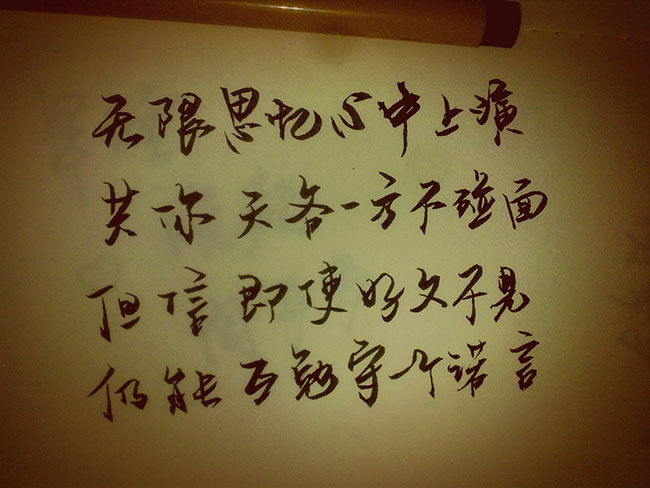 无限思忆心中上演
共你天各一方不碰面
但信即使好久不见
仍能互勉守个诺言